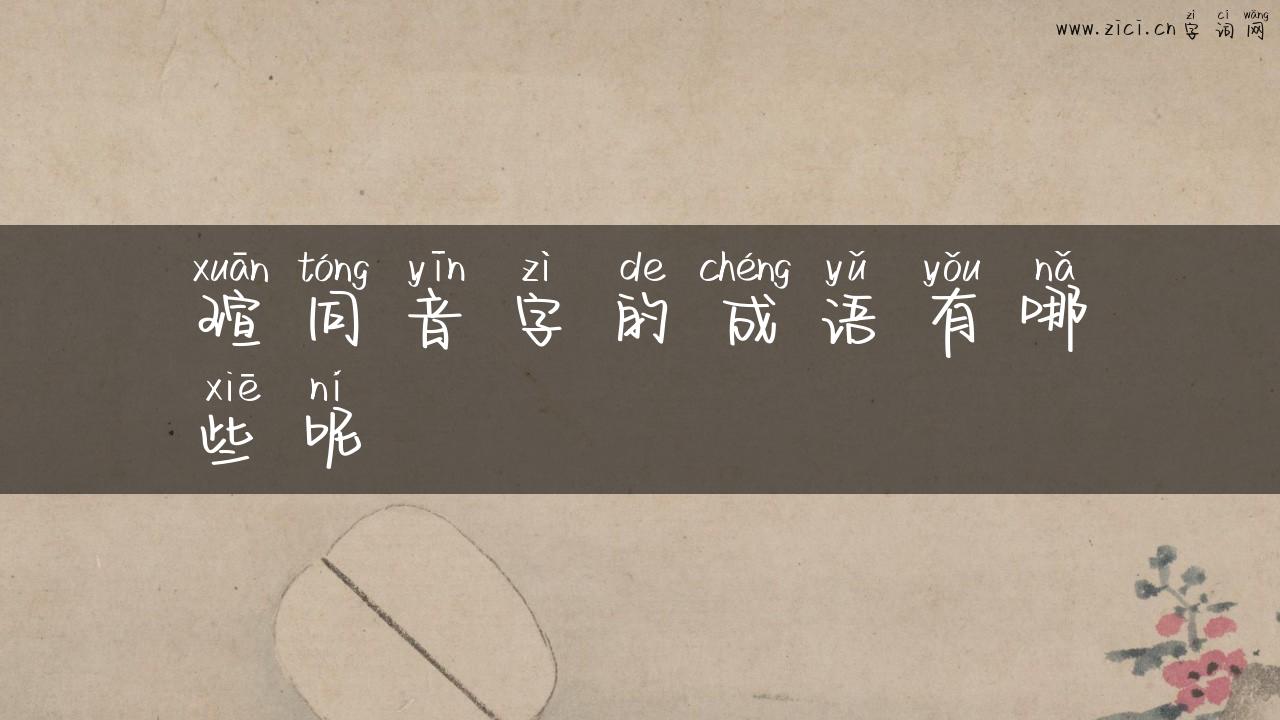 zì cí wǎng
www.zici.cn 字词网
xuān tóng yīn zì de chéng yǔ yǒu nǎ
瑄同音字的成语有哪
xiē ní
些呢